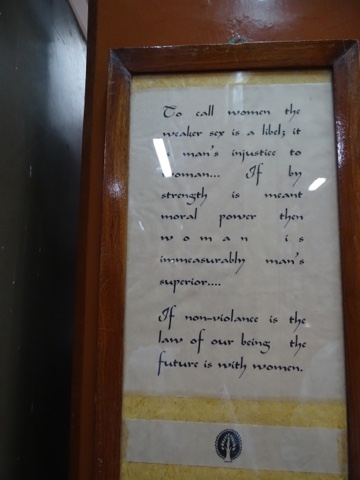 To call women the
weaker sex is a libel; it
man's injustice to
woman... If by
strength is meant
moral power then
woman is
immeasurably man's
superior....
If non-violance is the
law of our being the
future is with women.